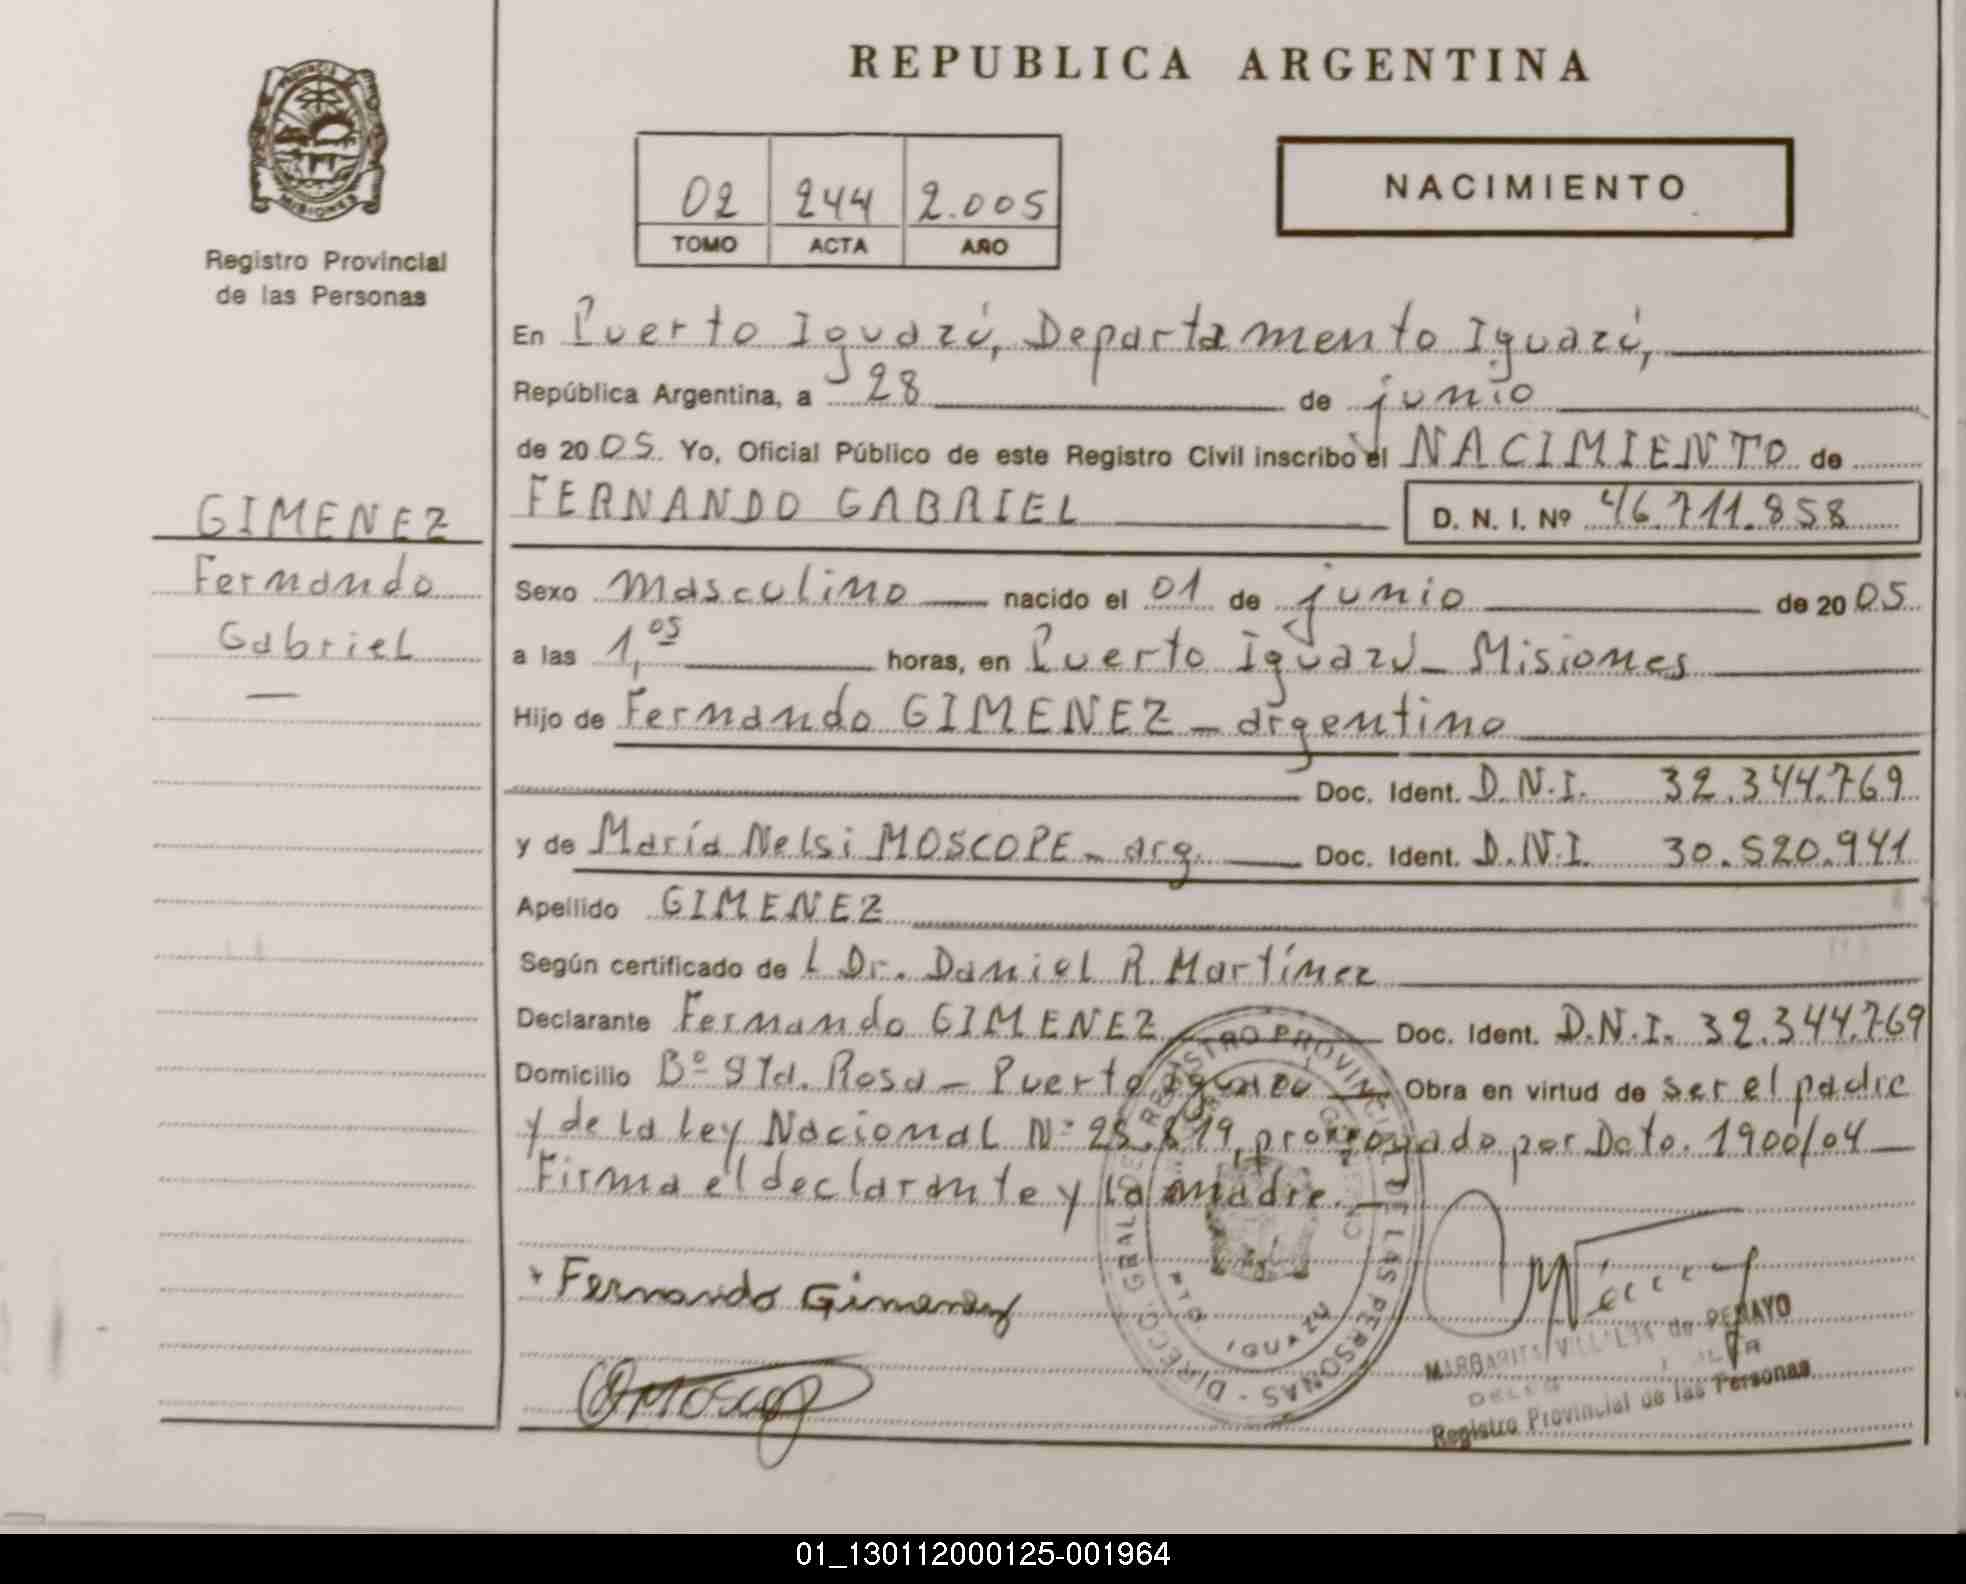 REPUBLICA ARGENTINA
PROVINCIA DE
MISIONES
Registro Provincial
de las Personas
02 244 2.005
TOMO ACTA AÑO
NACIMIENTO
En Puerto Iguazú, Departamento Iguazú,
República Argentina, a 28 de junio
de 2005. Yo, Oficial Público de este Registro Civil inscribo el NACIMIENTO de
FERNANDO GABRIEL D. N. I. Nº 46.711.858
GIMENEZ
Fernando
Gabriel
Sexo masculino nacido el 01 de junio de 2005
a las 1,05 horas, en Puerto Iguazú - Misiones
Hijo de Fernando GIMENEZ - argentino
Doc. Ident. D.N.I. 32.344.769
y de María Nelsi MOSCOPE - arg. Doc. Ident. D.N.I. 30.520.941
Apellido GIMENEZ
Según certificado de l Dr. Daniel R. Martínez
Declarante Fernando GIMENEZ Doc. Ident. D.N.I. 32.344.769
Domicilio Bº Sta. Rosa - Puerto Iguazú Obra en virtud de ser el padre
y de la ley Nacional Nº 25.819, prorrogado por Dcto. 1900/04
Firma el declarante y la madre.
Fernando Gimenez
DIRECC. GRAL. DE REGISTRO PROVINCIAL DE LAS PERSONAS
MARGARITA de PENAYO
Registro Provincial de las Personas
01_130112000125-001964